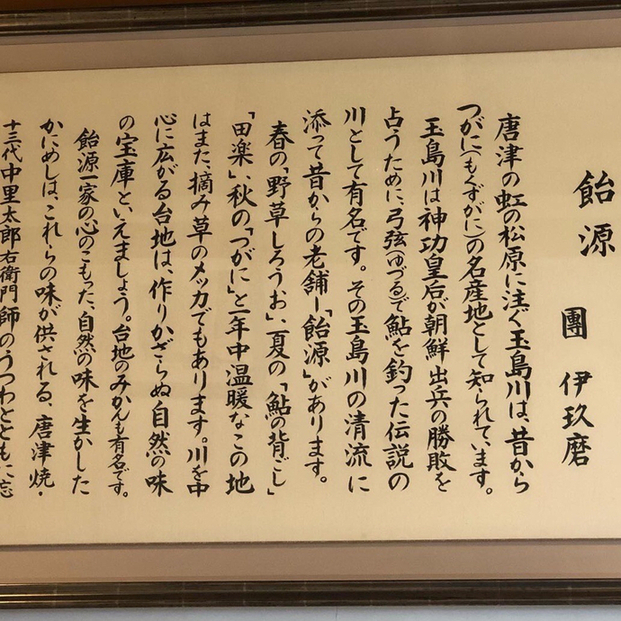 飴源
團 伊玖磨
唐津の虹の松原に注ぐ玉島川は、昔から
つがに(もくずがに)の名産地として知られています。
玉島川は神功皇后が朝鮮出兵の勝敗を
占うために、弓弦(ゆづる)で鮎を釣った伝説の
川として有名です。その玉島川の清流に
添って昔からの老舗―「飴源」があります。
春の「野草しろうお」、夏の「鮎の背ごし」
「田楽」、秋の「つがに」と一年中温暖なこの地
はまた、摘み草のメッカでもあります。川を中
心に広がる台地は、作りかざらぬ自然の味
の宝庫といえましょう。台地のみかんも有名です。
飴源一家の心のこもった、自然の味を生かした
かにめしは、これらの味が供される、唐津焼・
十三代中里太郎右衛門師のうつわとともに忘